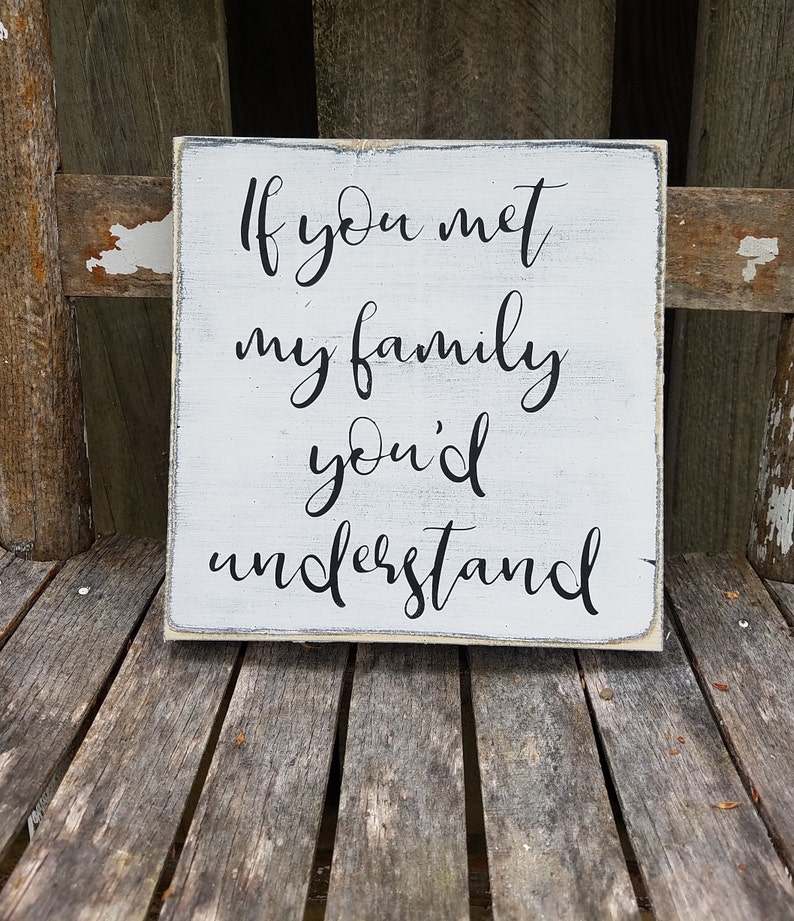 If you met
my family
you'd
understand